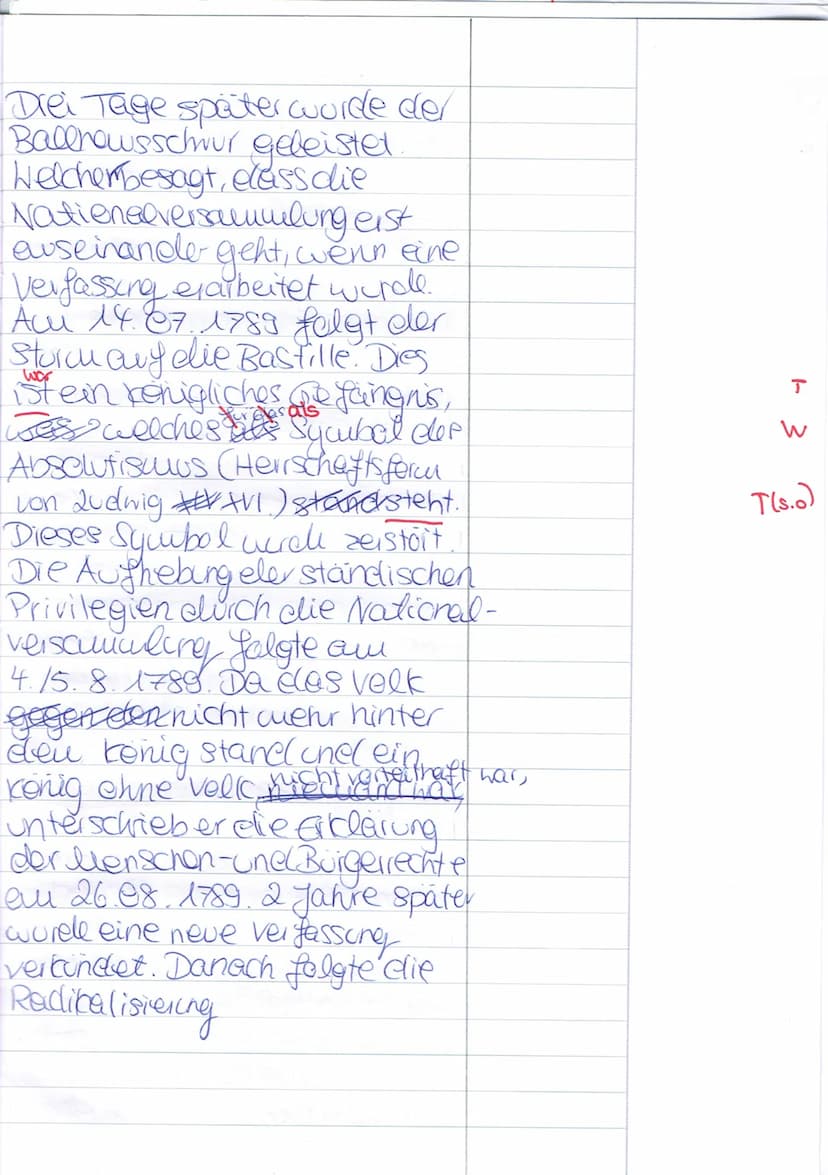 Drei Tage später wurde der
Ballhausschwur geleistet.
Welcher besagt, dass die
Nationalversammlung erst
auseinander geht, wenn eine
Verfassung erarbeitet wurde.
Am 14.07.1789 folgt der
Sturm auf die Bastille. Dies
war
ist ein königliches Gefängnis, T
für das als
was welches als Symbol der W
Absolutismus (Herrschaftsform
von Ludwig XVI.) stand steht. T(s.o)
Dieses Symbol wurde zerstört.
Die Aufhebung der ständischen
Privilegien durch die National-
versammlung folgte am
4./5.8.1789. Da das Volk
gegen den nicht mehr hinter
dem König stand und ein
nicht vorteilhaft war,
König ohne Volk niemand hat,
unterschrieb er die Erklärung
der Menschen- und Bürgerrechte
am 26.08.1789. 2 Jahre später
wurde eine neue Verfassung
verkündet. Danach folgte die
Radikalisierung